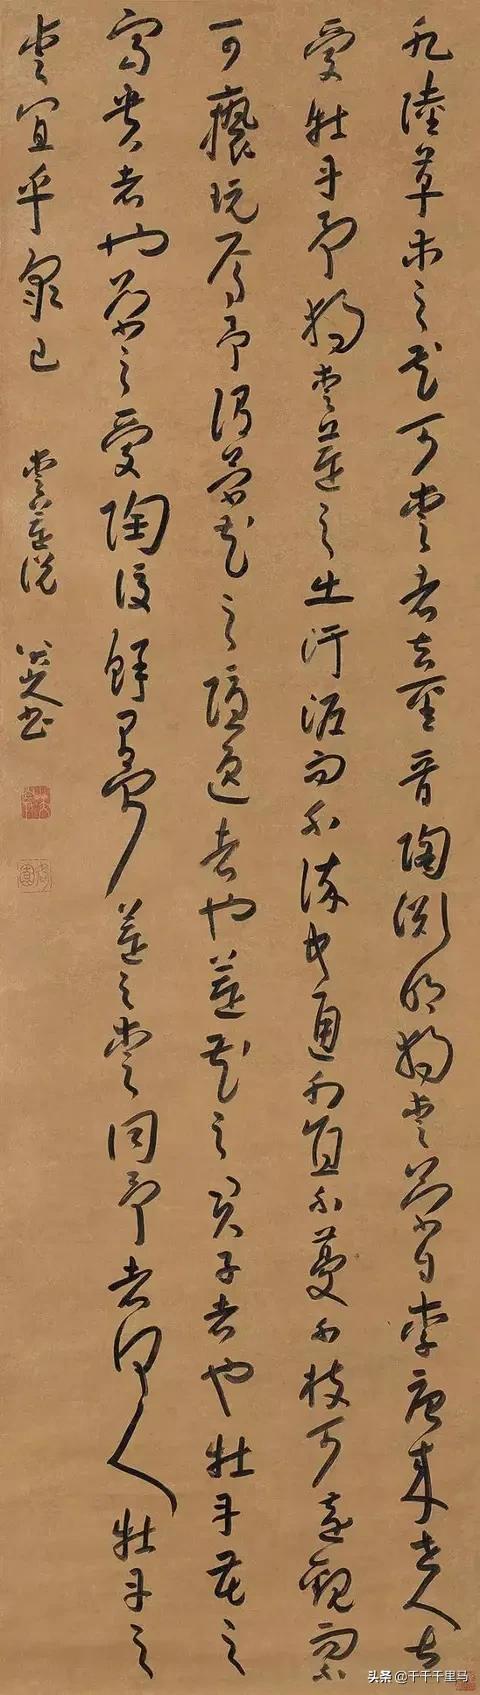 水陸草木之花可愛者甚蕃晉陶淵明獨愛菊自李唐來世人甚
愛牡丹予獨愛蓮之出汙泥而不染中通外直不蔓不枝可遠觀而不
可褻玩焉予謂菊花之隱逸者也蓮花之君子者也牡丹花之
富貴者也菊之愛陶後鮮有聞蓮之愛同予者何人牡丹之
愛宜乎眾已 愛蓮說 八大山人書
头条 @千千千里马